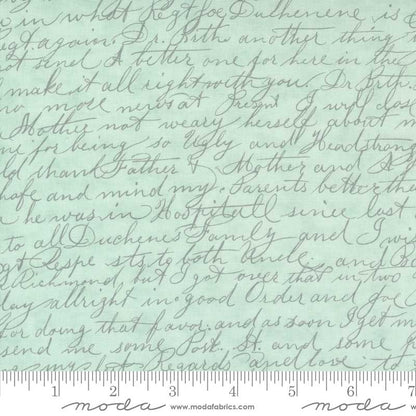 in what Regt Joe Duchenene is
again. Dr. Brth. another thing
not send A better one for here in the
make it all right with you. Dr. Brth.
no more news at Presnt I will clos
Mother not weary herself about m
me for being so Ugly and Headstrong
thank Father & Mother and A
and mind my Parents better tha
he was in Hospitall since last
to all Duchene's Family and I wi
both Uncle and
Richmond, but I got over that in two
day allright in good Order and Joe
For doing that favor. and as soon I get m
send me some Post. St. and some
my best Regards and love to
1 2 3 4 5 6 7
moda www.modafabrics.com moda moda